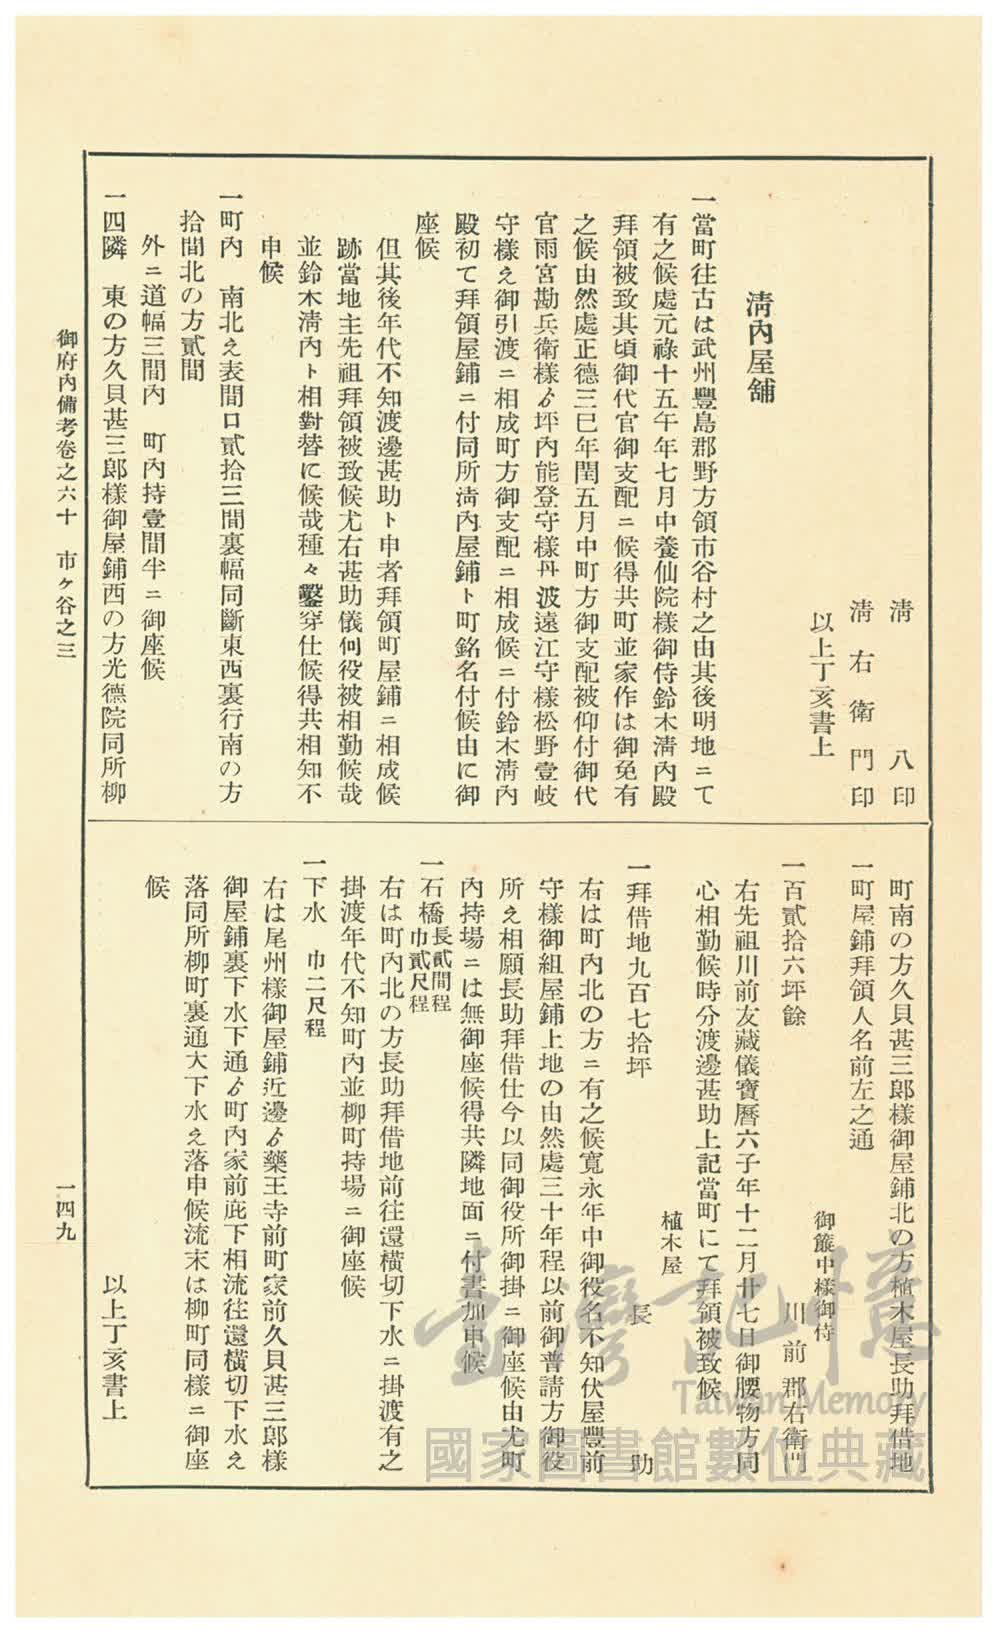 淸八印
淸右衞門印
以上丁亥書上
淸內屋舖
一當町往古は武州豐島郡野方領市谷村之由其後明地ニて
有之候處元祿十五午年七月中養仙院樣御侍鈴木淸內殿
拜領被致其頃御代官御支配ニ候得共町並家作は御免有
之候由然處正德三巳年閏五月中町方御支配被仰付御代
官雨宮勘兵衞樣ゟ坪內能登守樣丹波遠江守樣松野壹岐
守樣え御引渡ニ相成町方御支配ニ相成候ニ付鈴木淸內
殿初て拜領屋鋪ニ付同所淸內屋鋪ト町銘名付候由に御
座候
但其後年代不知渡邊甚助ト申者拜領町屋鋪ニ相成候
跡當地主先祖拜領被致候尤右甚助儀何役被相勤候哉
並鈴木淸內ト相對替に候哉種々鑿穿仕候得共相知不
申候
一町內　南北え表間口貳拾三間裏幅同斷東西裏行南の方
拾間北の方貳間
外ニ道幅三間內　町內持壹間半ニ御座候
一四隣　東の方久貝甚三郞樣御屋鋪西の方光德院同所柳
町南の方久貝甚三郞樣御屋鋪北の方植木屋長助拜借地
一町屋鋪拜領人名前左之通
御簾中樣御侍
一百貳拾六坪餘　川前郡右衞門
右先祖川前友藏儀寶曆六子年十二月廿七日御腰物方同
心相勤候時分渡邊甚助上記當町にて拜領被致候
植木屋
一拜借地九百七拾坪　長助
右は町內北の方ニ有之候寬永年中御役名不知伏屋豐前
守樣御組屋鋪上地の由然處三十年程以前御普請方御役
所え相願長助拜借仕今以同御役所御掛ニ御座候由尤町
內持場ニは無御座候得共隣地面ニ付書加申候
一石橋　長貳間程　巾貳尺程
右は町內北の方長助拜借地前往還橫切下水ニ掛渡有之
掛渡年代不知町內並柳町持場ニ御座候
一下水　巾二尺程
右は尾州樣御屋鋪近邊ゟ藥王寺前町家前久貝甚三郞樣
御屋鋪裏下水下通ゟ町內家前庇下相流往還橫切下水え
落同所柳町裏通大下水え落申候流末は柳町同樣ニ御座
候
以上丁亥書上
御府內備考卷之六十　市ケ谷之三
一四九
臺灣記憶
Taiwan Memory
國家圖書館數位典藏